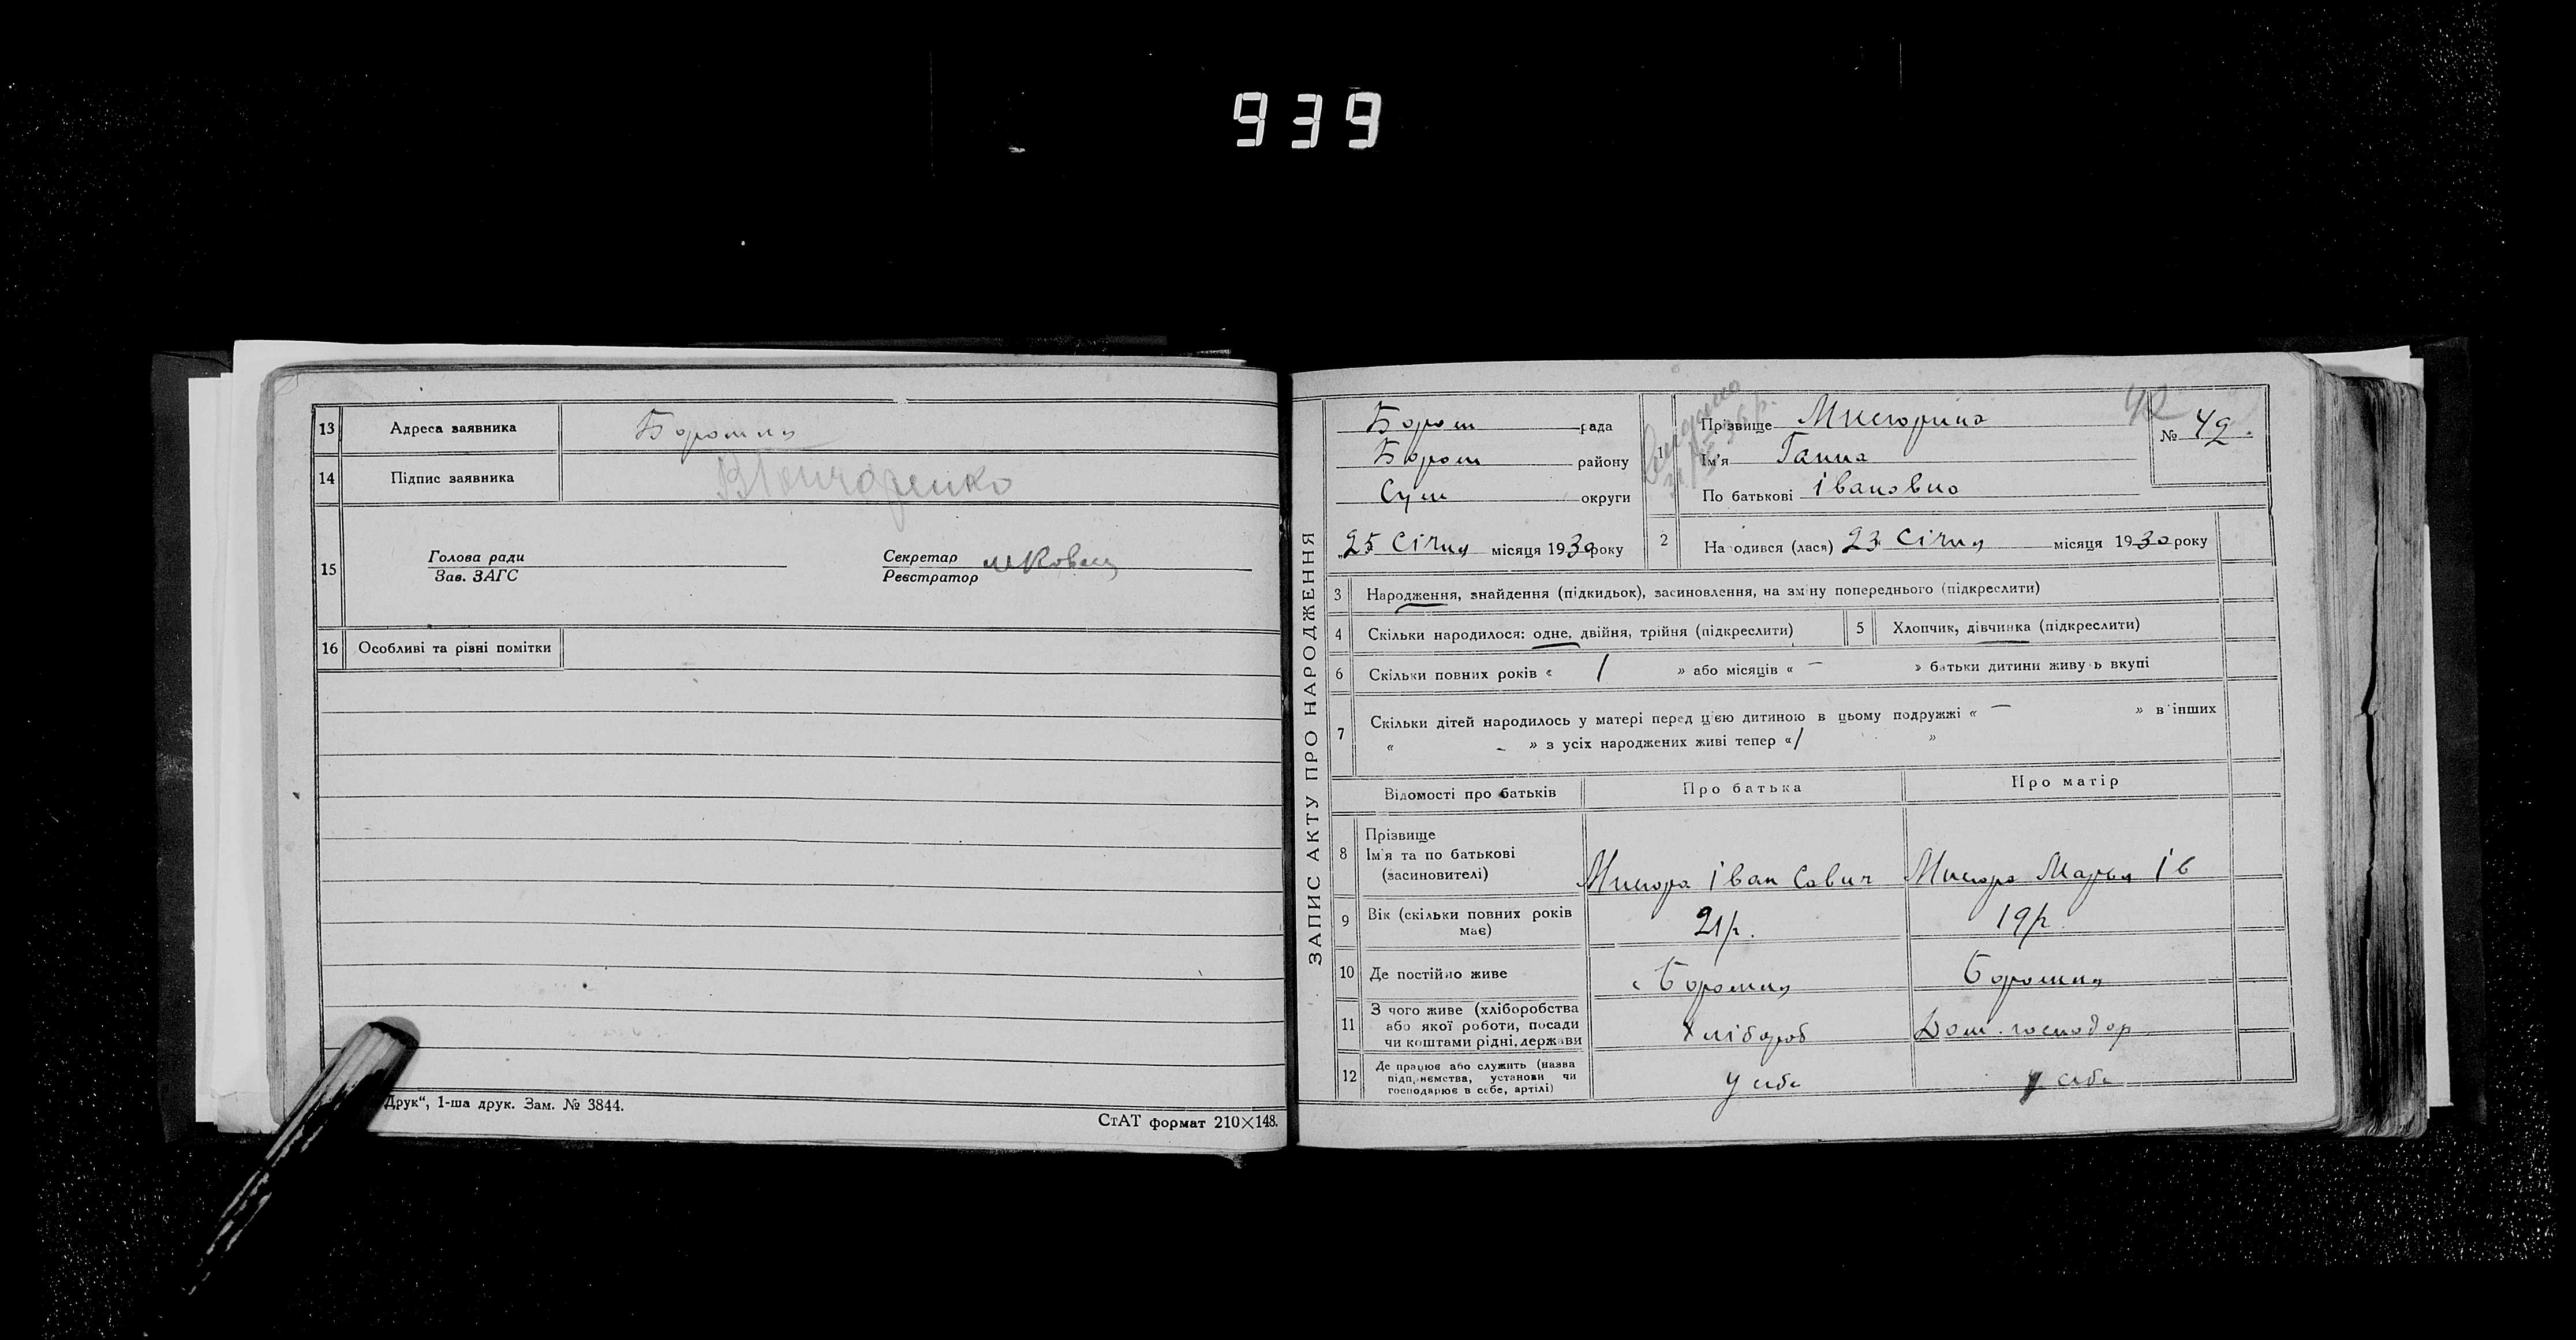 939
13 Адреса заявника Боромля
14 Підпис заявника В Гончаренко
15 Голова ради
Зав. ЗАГС
Секретар
Реєстратор
16 Особливі та різні помітки
Друк“, 1-ша друк. Зам. № 3844.
СтАТ формат 210×148.
ЗАПИС АКТУ ПРО НАРОДЖЕННЯ
Бором рада
Бором району
Сум округи
„25 Січня місяця 1930 року
1 Прізвище
Ім'я Ганна
По батькові Івановна
42
№ 42.
2 Народився (лася) 23 Січня місяця 1930 року
3 Народження, знайдення (підкидьок), засиновлення, на зміну попереднього (підкреслити)
4 Скільки народилося: одне, двійня, трійня (підкреслити)
5 Хлопчик, дівчинка (підкреслити)
6 Скільки повних років « 1 » або місяців « — » батьки дитини живуть вкупі
7 Скільки дітей народилось у матері перед цією дитиною в цьому подружжі « — » в інших
« - » з усіх народжених живі тепер «1 »
Відомості про батьків Про батька Про матір
8 Прізвище
Ім'я та по батькові
(засиновителі)
Іван Савич Марья Ів
9 Вік (скільки повних років
має) 21 р. 19 р.
10 Де постійно живе Боромля Боромля
11 З чого живе (хліборобства
або якої роботи, посади
чи коштами рідні, держави
Хлібороб Дом. господар
12 Де працює або служить (назва
підприємства, установи чи
господарює в себе, артілі)
У себе У себе